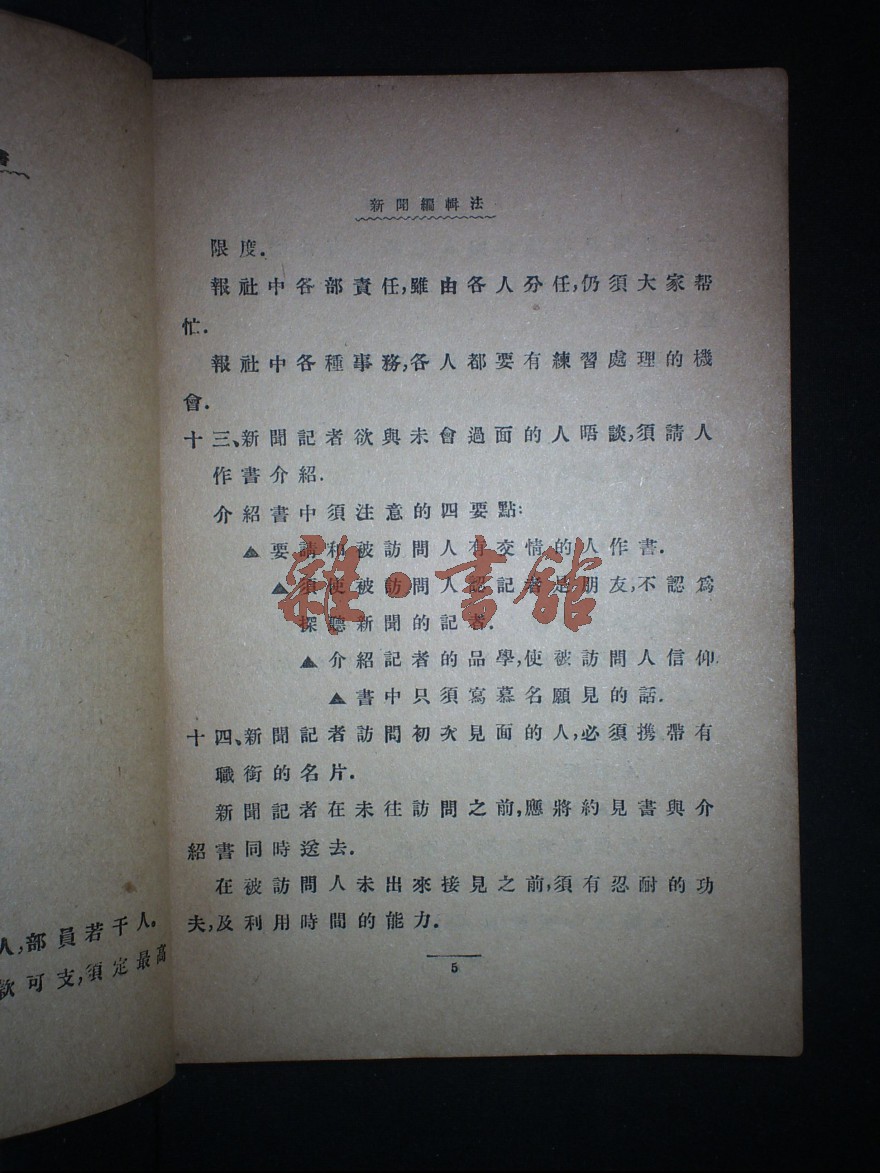 書
人,部員若干人.
款可支,須定最高
新聞編輯法
限度.
報社中各部責任,雖由各人分任,仍須大家帮
忙.
報社中各種事務,各人都要有練習處理的機
會.
十三、新聞記者欲與未會過面的人晤談,須請人
作書介紹.
介紹書中須注意的四要點:
▲要請和被訪問人有交情的人作書.
▲須使被訪問人認記者是朋友,不認爲
探聽新聞的記者.
▲介紹記者的品學,使被訪問人信仰.
▲書中只須寫慕名願見的話.
十四、新聞記者訪問初次見面的人,必須携帶有
職銜的名片.
新聞記者在未往訪問之前,應將約見書與介
紹書同時送去.
在被訪問人未出來接見之前,須有忍耐的功
夫,及利用時間的能力.
5
雜·書館